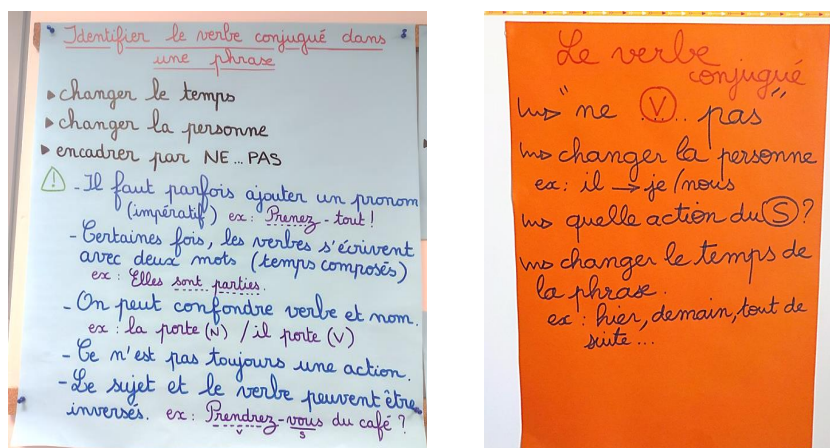 Identifier le verbe conjugué dans
une phrase
▸ changer le temps
▸ changer la personne
▸ encadrer par NE ... PAS
⚠ - Il faut parfois ajouter un pronom
(impératif) ex : Prenez - tout !
- Certaines fois, les verbes s'écrivent
avec deux mots (temps composés)
ex : Elles sont parties.
- On peut confondre verbe et nom.
ex : la porte (N) / il porte (V)
- Ce n'est pas toujours une action.
- Le sujet et le verbe peuvent être
inversés. ex : Prendrez-vous du café ?
V S
Le verbe
conjugué
"ne V... pas"
changer la personne
ex : il → je / nous
quelle action du S ?
changer le temps de
la phrase.
ex : hier, demain, tout de
suite ...